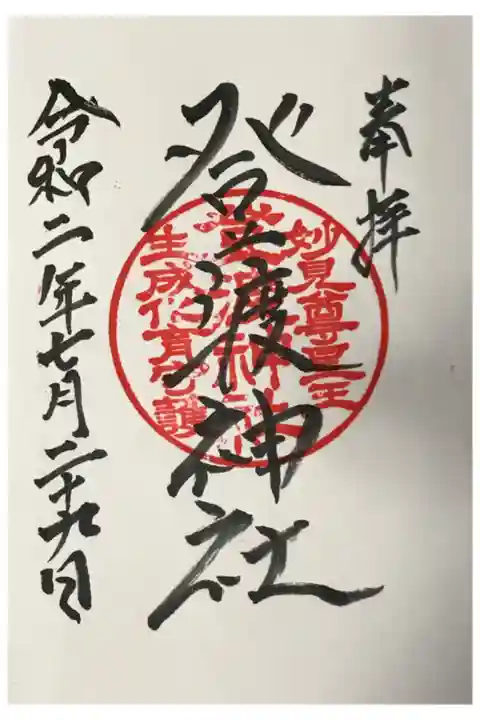 奉拝
妙見尊星王
登渡神社
登渡神社
生成化育守護
令和二年七月二十九日